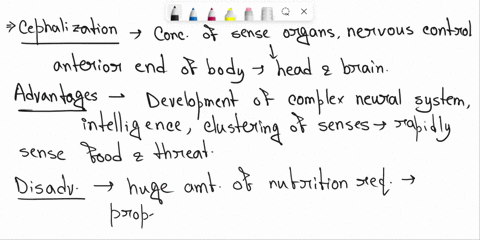 ⇒ Cephalization → Conc. of sense organs, nervous control
↓
anterior end of body → head & brain.
Advantages - Development of complex neural system,
intelligence, clustering of senses → rapidly
sense food & threat.
Disadv. → huge amt. of nutrition req. →
prop